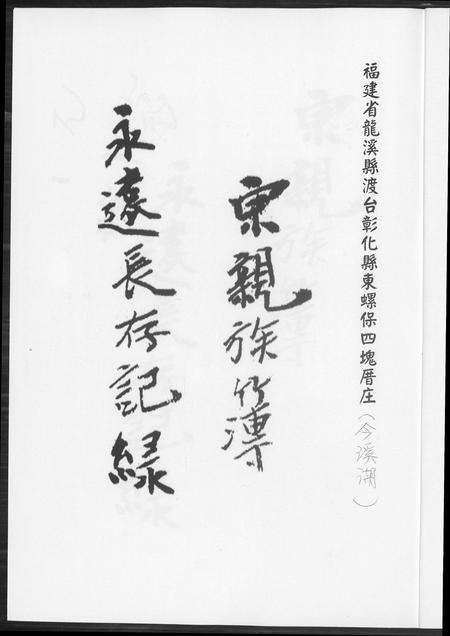 福建省龍溪縣渡台彰化縣東螺保四塊厝庄(今溪湖)
宗親族簿
永遠長存記錄